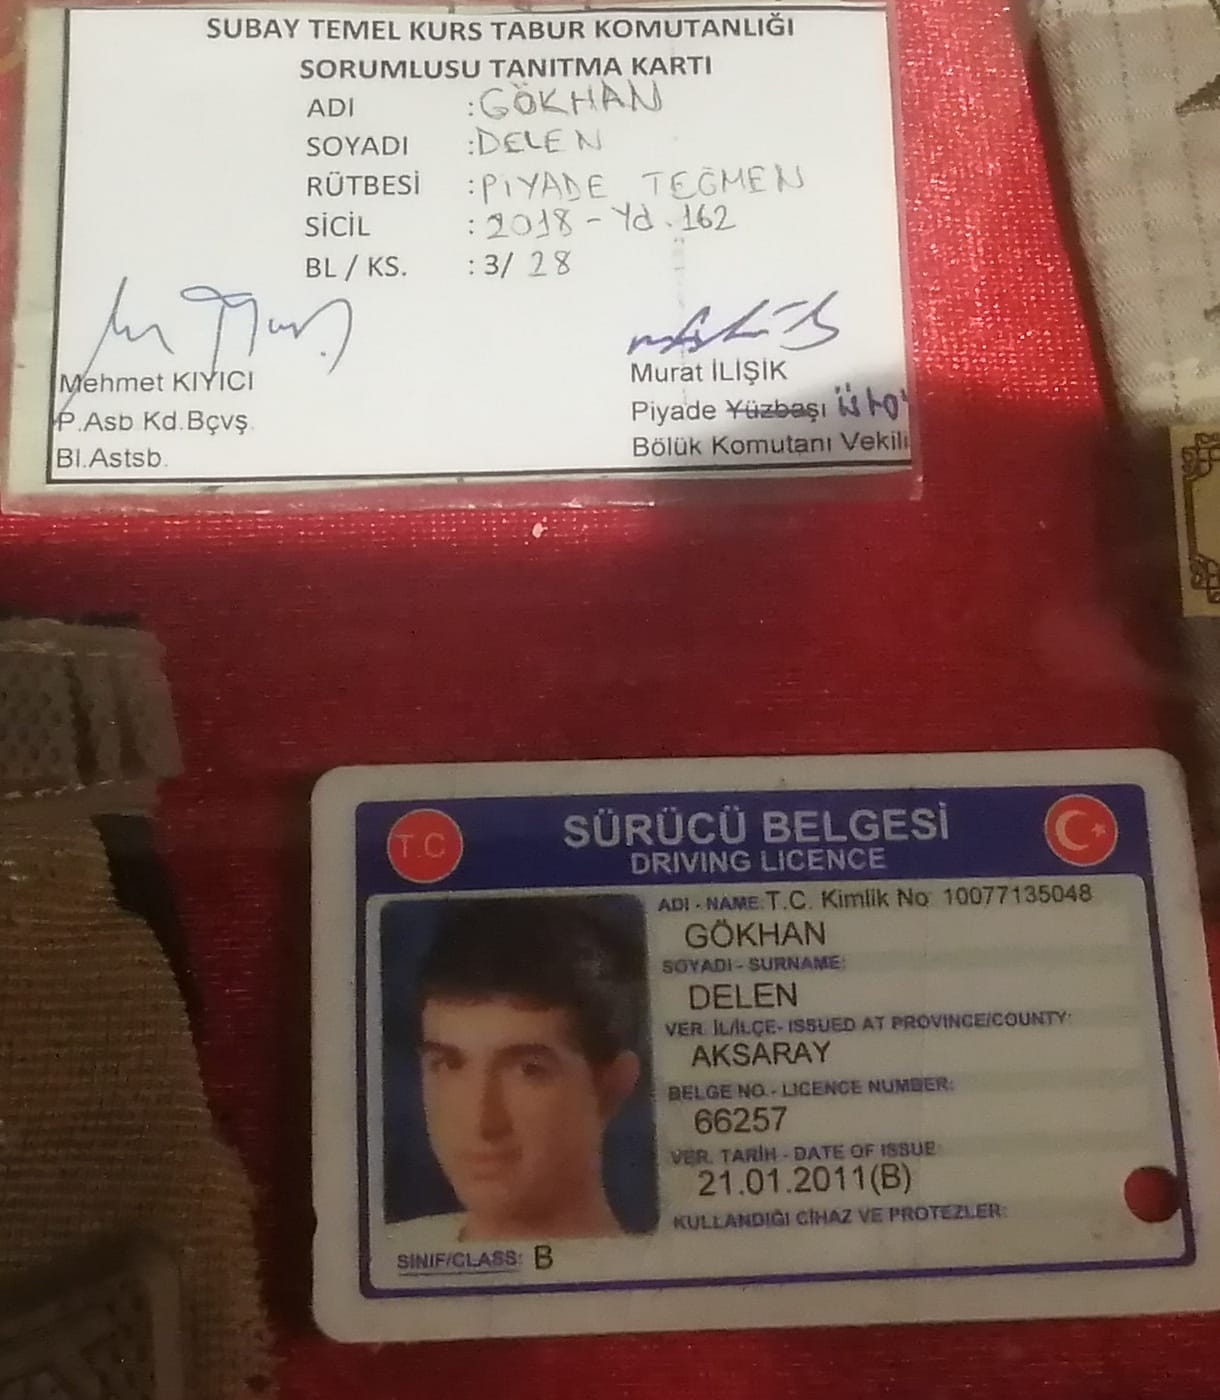 SUBAY TEMEL KURS TABUR KOMUTANLIĞI
SORUMLUSU TANITMA KARTI
ADI :GÖKHAN
SOYADI :DELEN
RÜTBESİ :PİYADE TEĞMEN
SİCİL : 2018 - Yd. 162
BL / KS. : 3/ 28
Mehmet KIYICI
P.Asb Kd.Bçvş.
Bl.Astsb.
Murat İLİŞİK
Piyade Yüzbaşı
Bölük Komutanı Vekili
T.C
SÜRÜCÜ BELGESİ
DRIVING LICENCE
ADI - NAME: T.C. Kimlik No 10077135048
GÖKHAN
SOYADI - SURNAME:
DELEN
VER. İL/İLÇE- ISSUED AT PROVINCE/COUNTY:
AKSARAY
BELGE NO.- LICENCE NUMBER:
66257
VER. TARİH - DATE OF ISSUE:
21.01.2011(B)
KULLANDIĞI CİHAZ VE PROTEZLER:
SINIF/CLASS: B